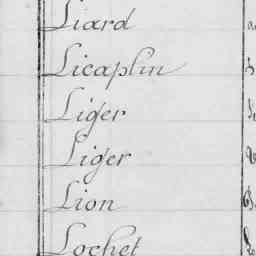 Liard
Licaplin
Liger
Liger
Lion
Lochet